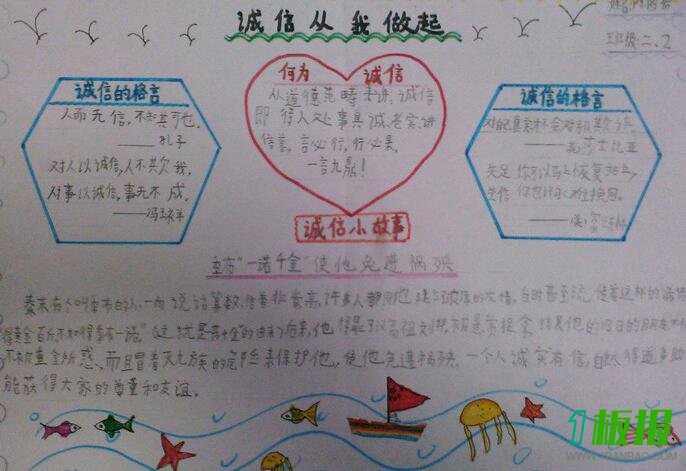 诚信从我做起
班级:二、2
诚信的格言
人而无信,不知其可也。
——孔子
对人以诚信,人不欺我,
对事以诚信,事无不成。
——冯玉祥
何为 诚信
从道德范畴来讲,诚信
即待人处事真诚、老实、讲
信誉,言必行,行必果,
一言九鼎!
诚信的格言
——莎士比亚
失足,你可以马上恢复站立,
失信,你也许永难挽回。
诚信小故事
季布“一诺千金”使他免遭祸殃
秦末有个叫季布的人,一向说话算数,信誉非常高,许多人都同他建立深厚的友情。当时甚至流传着这样的
“得黄金百斤,不如得季布一诺。”这就是一诺千金的由来,后来,他得罪了汉高祖刘邦,被悬赏捉拿。结果他的旧日的朋友不
不被重金所惑,而且冒着灭九族的危险来保护他,使他免遭祸殃。一个人诚实有信,自然得道多助
能获得大家的尊重和友谊。
1板报
WWW.1BANBAO.COM